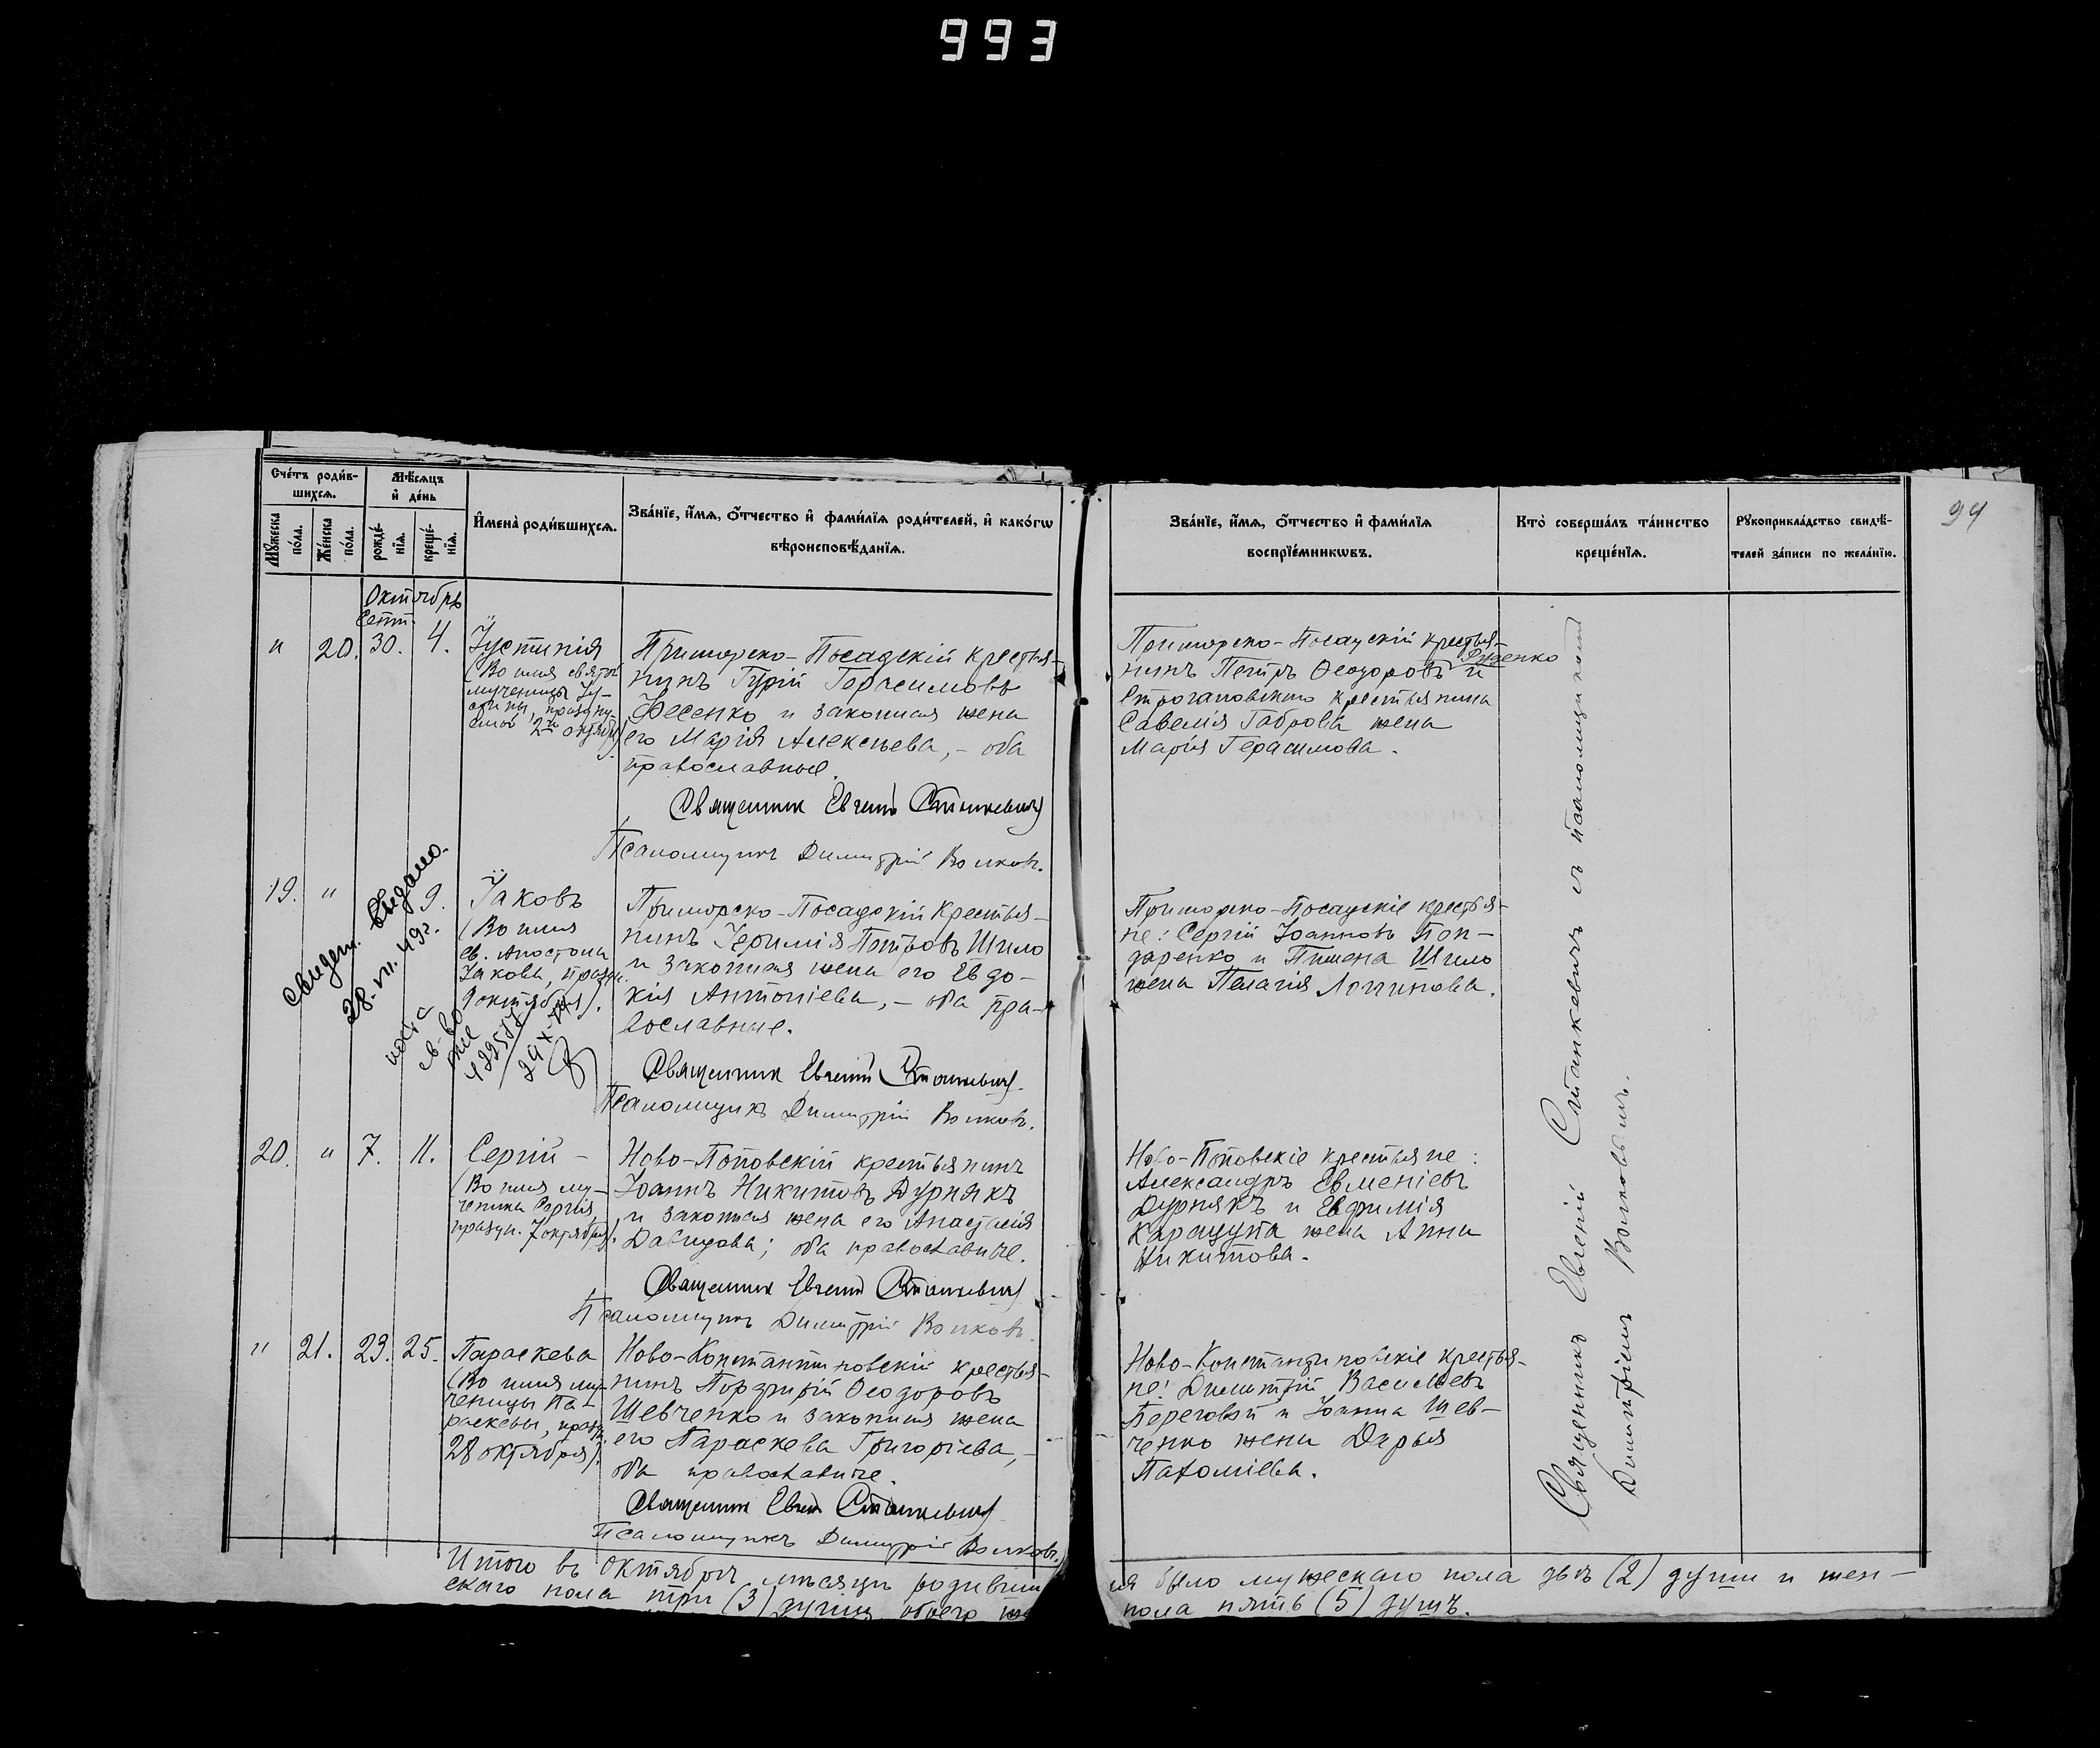 993
94
Счетъ родившихся.
Мѣсяцъ и день
Мужеска пола.
Женска пола.
рожденія.
крещенія.
Имена родившихся.
Званіе, имя, отчество и фамилія родителей, и какогѡ
вѣроисповѣданія.
Званіе, имя, отчество и фамилія
воспріемникѡвъ.
Кто совершалъ таинство
крещенія.
Рукоприкладство свидѣ-
телей записи по желанію.
Октябрь
Сент.
" 20. 30. 4.
Іустинія
(Во имя святой
мученицы Іу-
стины, праздну
емой 2й октября)
Приморско-Посадскій крестья-
нинъ Гурій Герасимовъ
Фесенко и законная жена
его Марія Алексѣева, - оба
православные.
Священник Евгеній Станкевич
Псаломщикъ Димитрій Волковъ.
Приморско-Посадскій крестья-
нинъ Петръ Ѳеодоровъ Руденко и
Строгановского крестьянина
Савелія Габрова жена
Марія Герасимова.
19. " 9.
Свидет. выдано.
28. VII. 49г.
Іаковъ
(Во имя
св. Апостола
Іакова, праздн.
9 октября).
Приморско-Посадскій Крестья-
нинъ Іеримія Петровъ Шило
и законная жена его Евдо-
кія Антоніева, - оба пра-
вославные.
Священник Евгеній Станкевич.
Псаломщикъ Димитрій Волковъ.
Приморско-Посадскіе крестья-
не: Сергій Іоанновъ Пон-
даренко и Пимена Шило
жена Пелагія Логинова.
20. " 7. 11.
Сергій -
(Во имя му-
ченика Сергія,
праздн. 7 октября).
Ново-Поповскій крестьянинъ
Іоаннъ Никитовъ Дурнякъ
и законная жена его Анастасія
Давидова; оба православные.
Священник Евгеній Станкевич
Псаломщикъ Димитрій Волковъ.
Ново-Поповскіе крестьяне:
Александръ Евменіевъ
Дурнякъ и Евфимія
Каращупа жена Анна
Никитова.
" 21. 23. 25.
Параскева
(Во имя му-
ченицы Па-
раскевы, праздн.
28 октября).
Ново-Константиновскій крестья-
нинъ Порфирій Ѳеодоровъ
Шевченко и законная жена
его Параскева Григоріева, -
оба православные.
Священник Евгеній Станкевич
Псаломщикъ Димитрій Волковъ.
Ново-Константиновскіе крестья-
не: Димитрій Васильевъ
Береговой и Іоанна Шев-
ченко жена Дарья
Пахоміева.
Священникъ Евгеній Станкевичъ съ псаломщикомъ
Димитріемъ Волковымъ.
Итого въ Октябрѣ мѣсяцѣ родивши
ся было мужескаго пола двѣ (2) души и жен-
скаго пола три (3) души, обоего
пола пять (5) душъ.